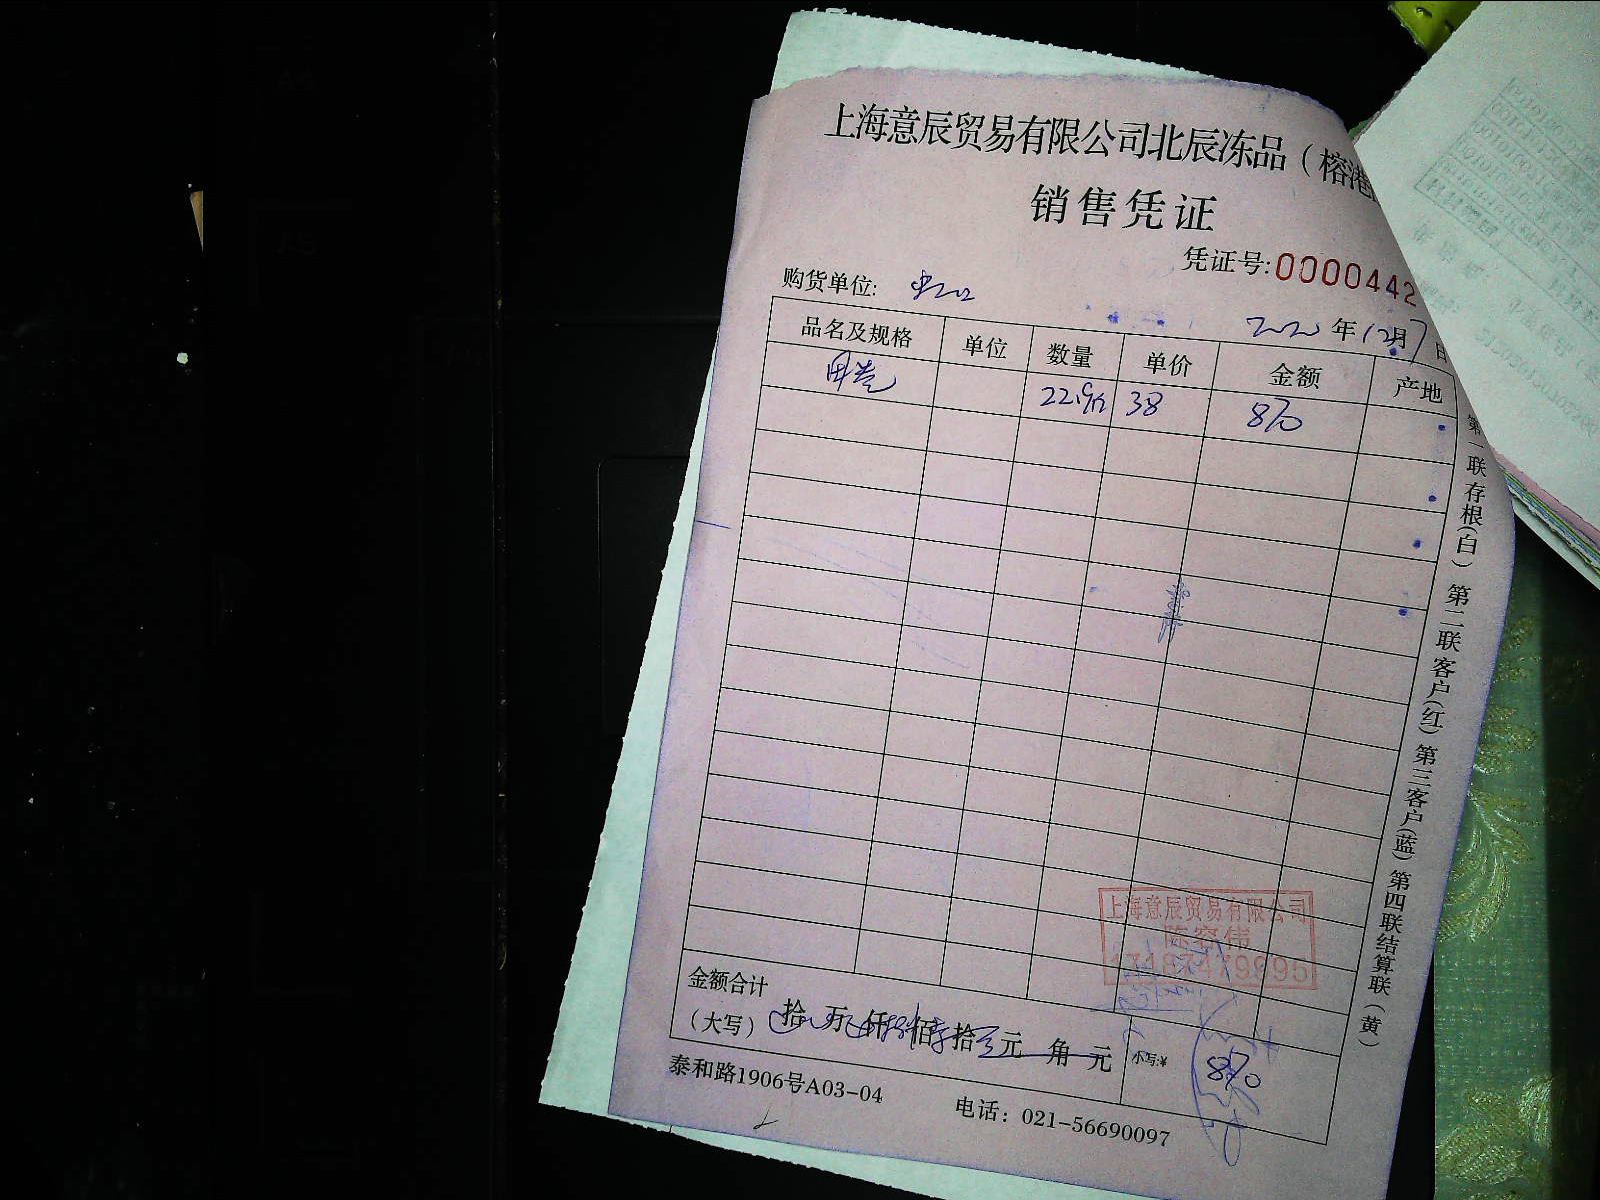 上海意辰贸易有限公司北辰冻品（榕港
销售凭证
凭证号:0000442
购货单位:
2020年12月7日
品名及规格 单位 数量 单价 金额 产地
22.9 38 870
第一联存根(白) 第二联客户(红) 第三客户(蓝) 第四联结算联(黄)
上海意辰贸易有限公司
金额合计
（大写） 拾 万 仟 佰 拾 元 角 元 小写:¥ 870
泰和路1906号A03-04 电话：021-56690097